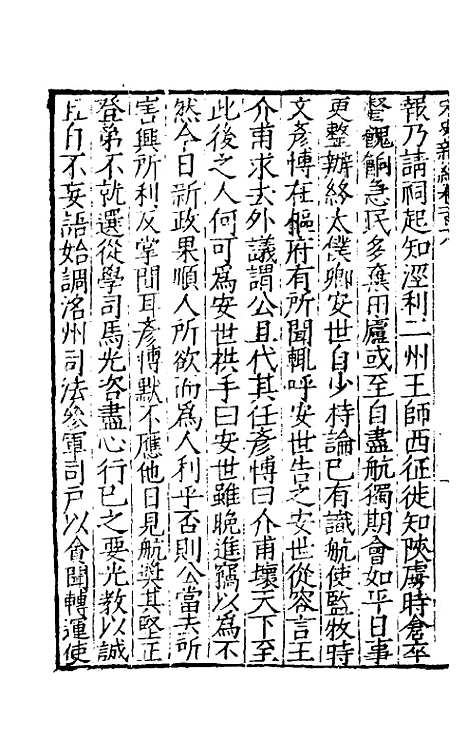 宋史新編卷百六
報乃請祠起知涇利二州王師西征徙知陝虜時倉卒
督餽餉急民多棄田廬或至自盡航獨期會如平日事
更整辦終太僕卿安世自少持論已有識航使監牧時
文彥博在樞府有所聞輒呼安世告之安世從容言王
介甫求去外議謂公且代其任彥博曰介甫壞天下至
此後之人何可為安世拱手曰安世雖晚進竊以為不
然今日新政果順人所欲而為人利乎否則公當去所
害興所利反掌間耳彥博默不應他日見航歎其堅正
登第不就選從學司馬光咨盡心行己之要光教以誠
且自不妄語始調洺州司法參軍司戶以貪聞轉運使